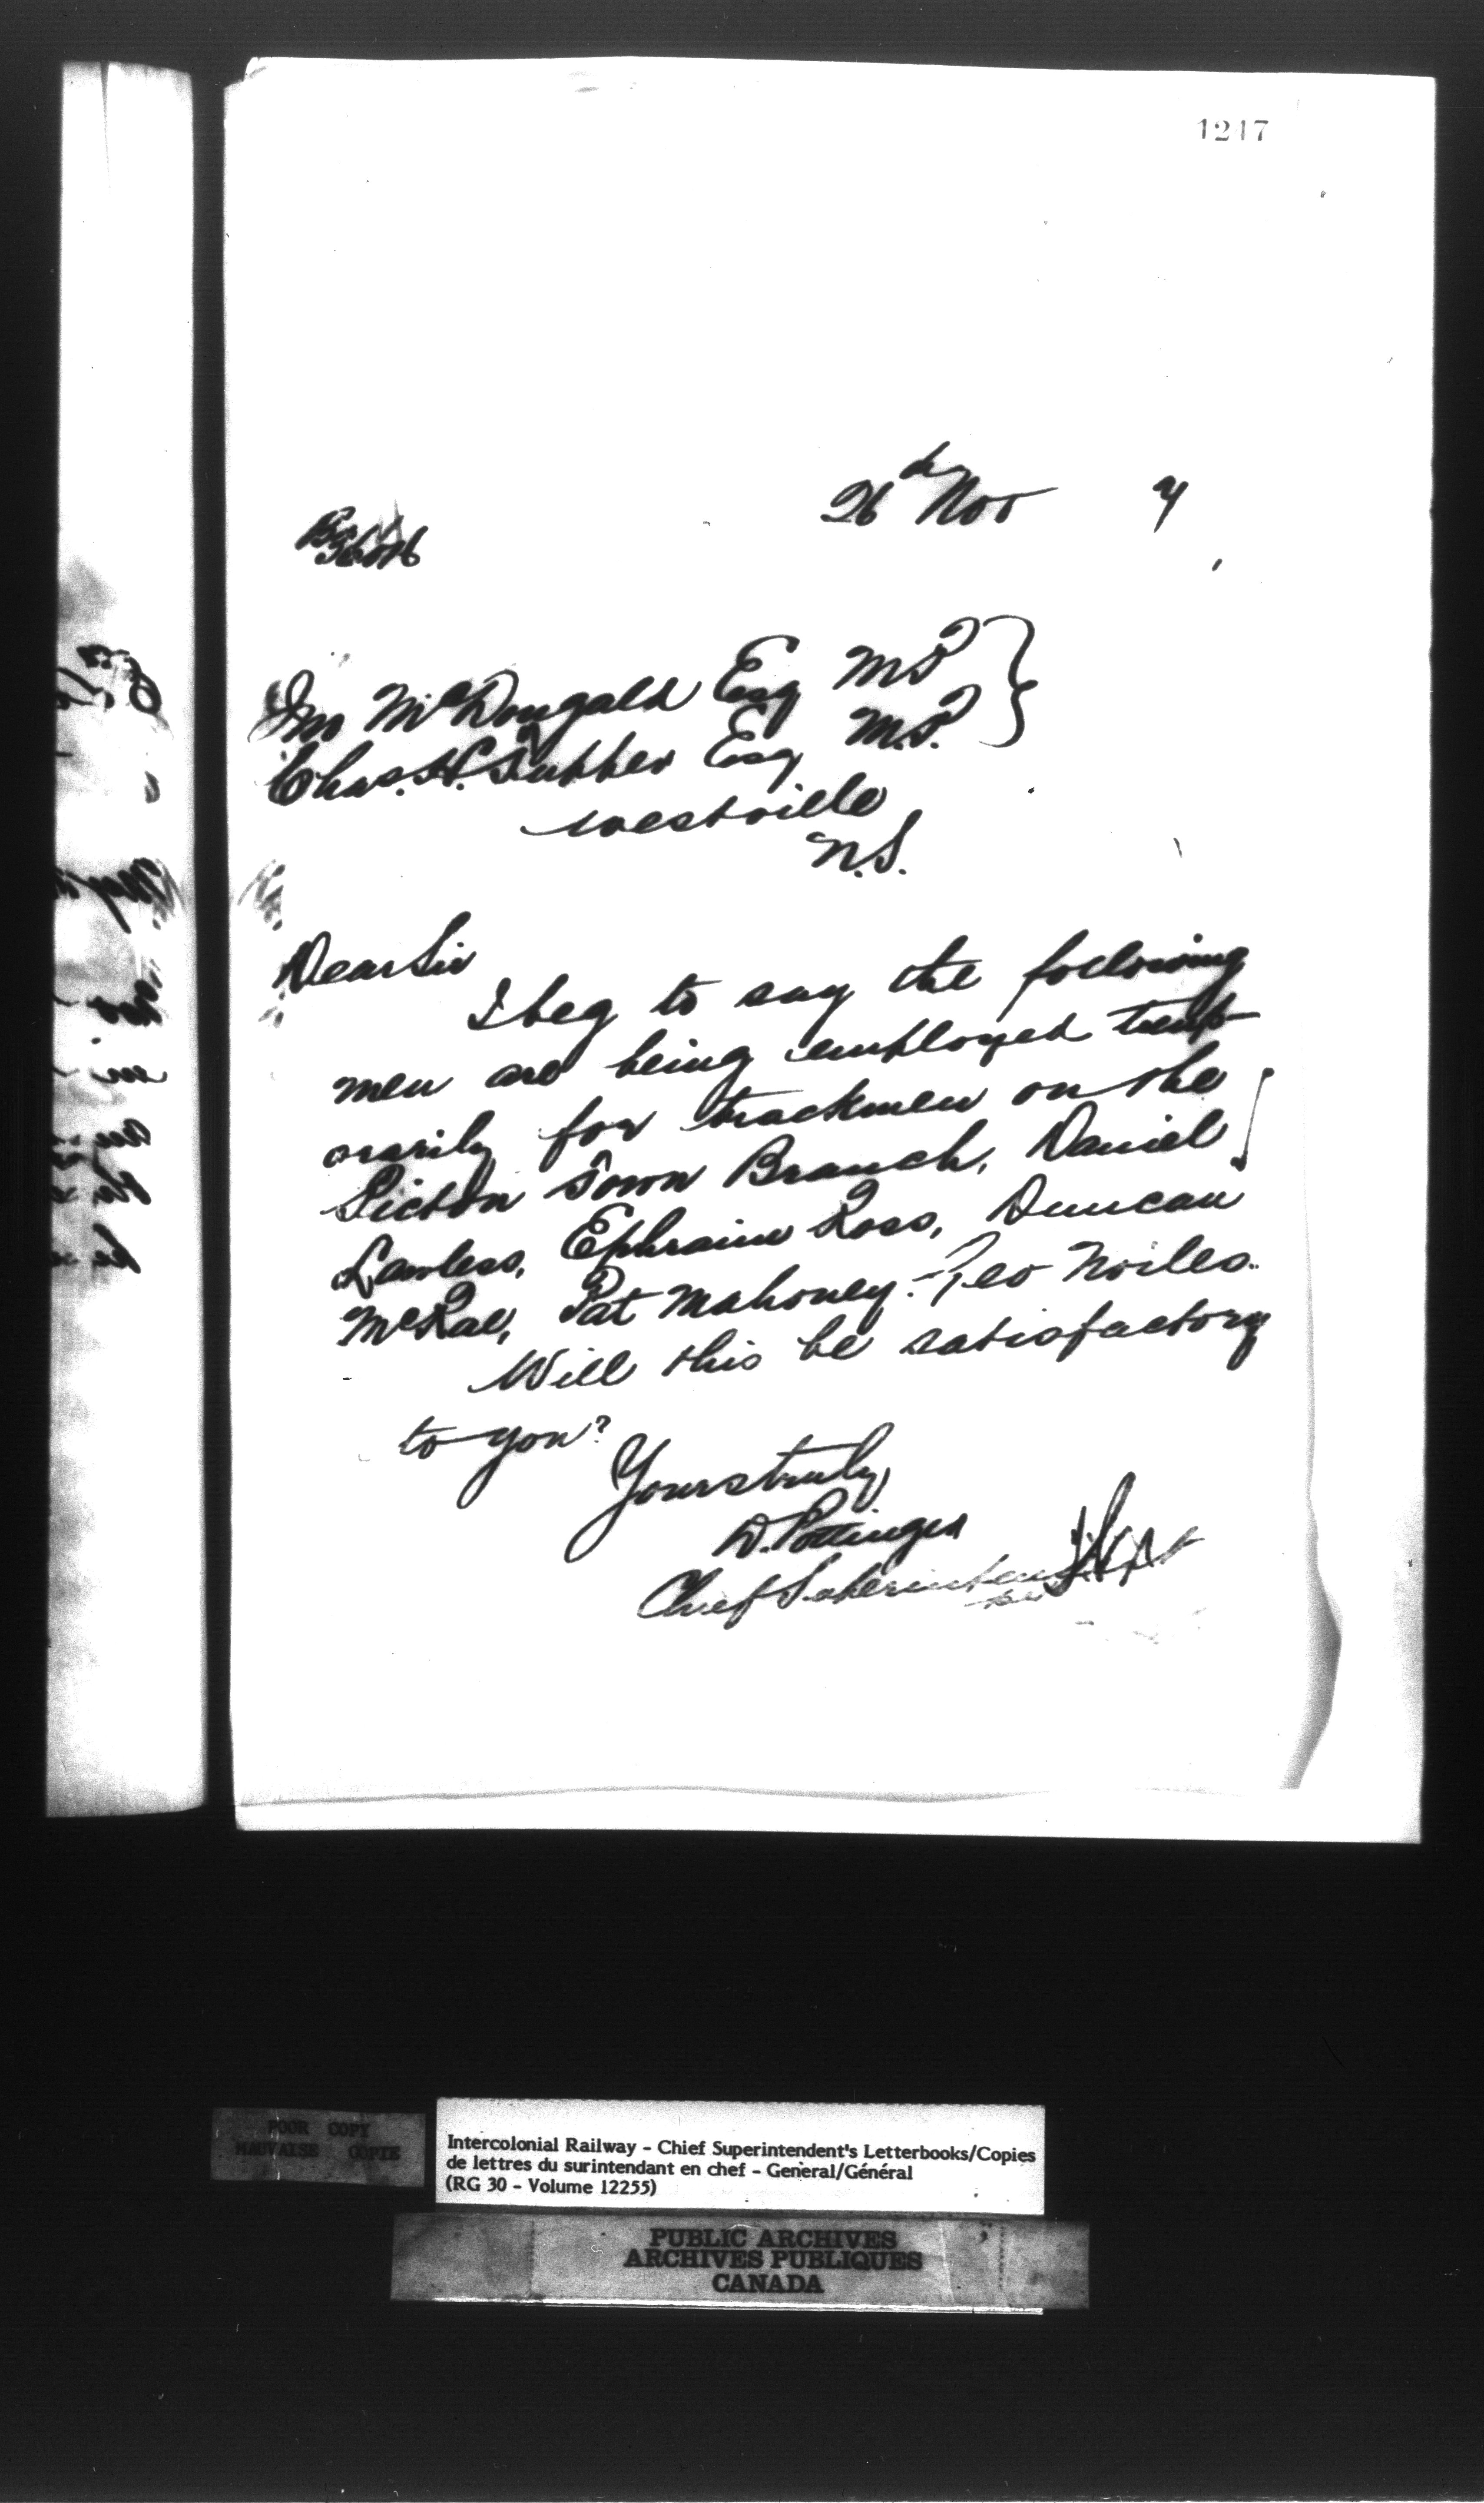 1217
26th Nov 7
Jno McDougald Esq MP
Chas. H. Tupper Esq M.P.
Westville
N.S.
Dear Sir
I beg to say the following
men are being employed temp-
orarily for trackmen on the
Pictou Town Branch, Daniel
Lawless, Ephraim Ross, Duncan
McRae, Pat Mahoney. Geo Noiles.
Will this be satisfactory
to you?
Yours truly
D. Pottinger
Chief Superintendent
POOR COPY
MAUVAISE COPIE
Intercolonial Railway - Chief Superintendent's Letterbooks/Copies
de lettres du surintendant en chef - General/Général
(RG 30 - Volume 12255)
PUBLIC ARCHIVES
ARCHIVES PUBLIQUES
CANADA